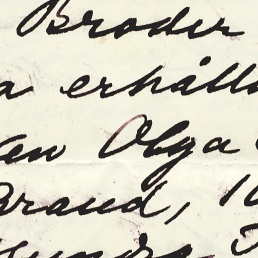 Broder
a erhålla
an Olga
Brand, 10